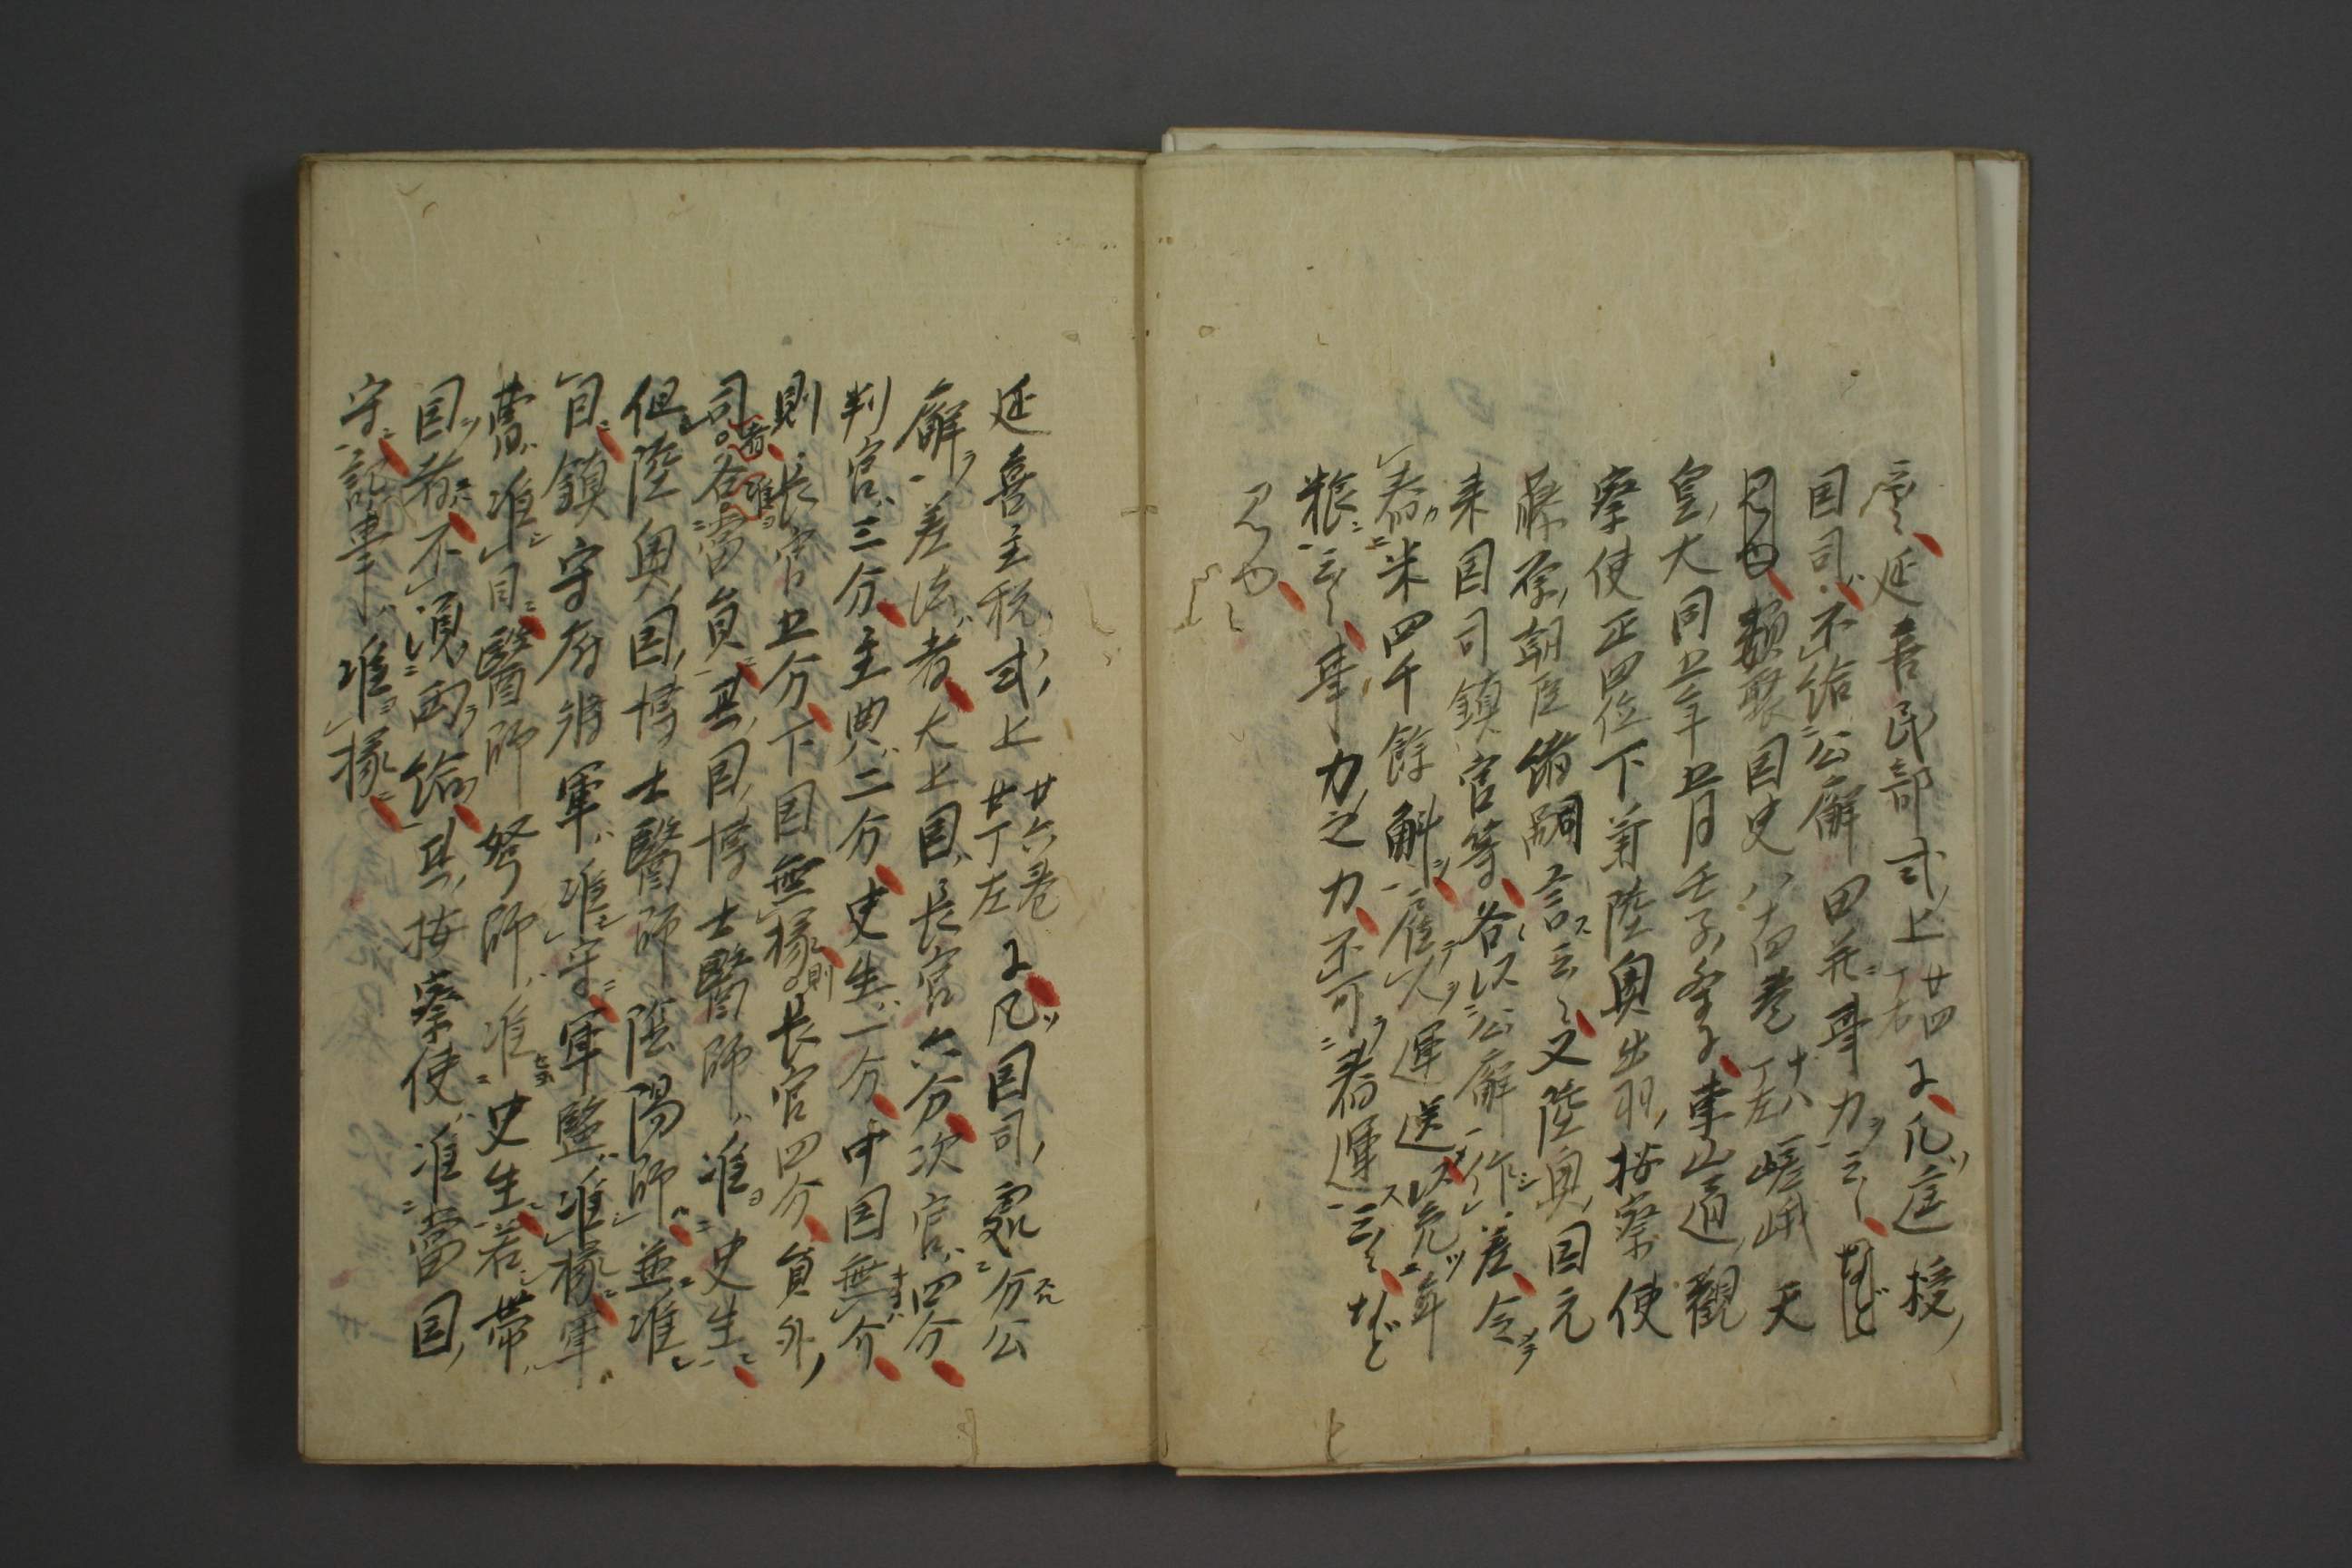 云々延喜民部式上廿四丁右に凡遥授
国司不給公廨田并事力云々など
見ゆ類聚国史八十四巻十八丁左嵯峨天
皇大同五年五月壬子条に東山道観
察使正四位下兼陸奥出羽按察使
藤原朝臣緒嗣言云々又陸奥国元
来国司鎮官等各以公廨作差令
舂米四千餘斛雇人運送以宛年
粮云々事力之力不可舂運云々など
見ゆ
延喜主税式上廿六巻廿丁左に凡国司処分公
廨差法者大上国長官六分次官四分
判官三分主典二分史生一分中国無介
則長官五分下国無掾則長官四分員外
司者各准当員其国博士医師准史生
但陸奥国博士医師陰陽師並准
目鎮守府将軍准守軍監准掾軍
曹准目医師弩師准史生若帯
国者不須両給其按察使准当国
守記事准掾